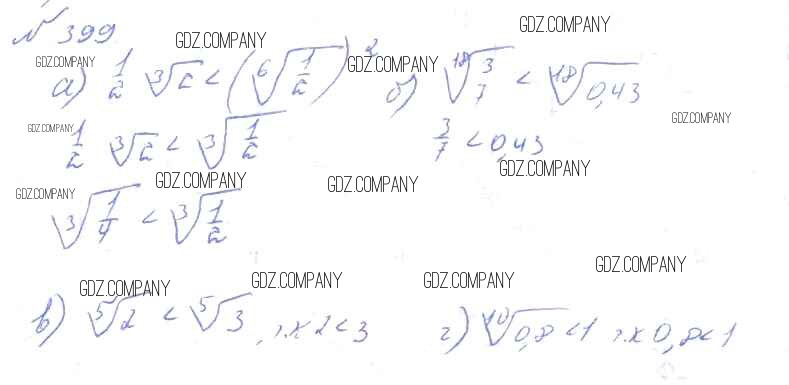 № 399
GDZ.COMPANY GDZ.COMPANY
GDZ.COMPANY GDZ.COMPANY
а) 1/2 ∛2 < (⁶√(1/2))² б) ¹⁸√(3/7) < ¹⁸√0,43
GDZ.COMPANY GDZ.COMPANY
1/2 ∛2 < ∛(1/2) 3/7 < 0,43
GDZ.COMPANY GDZ.COMPANY GDZ.COMPANY GDZ.COMPANY
∛(1/4) < ∛(1/2)
GDZ.COMPANY GDZ.COMPANY GDZ.COMPANY GDZ.COMPANY
в) ⁵√2 < ⁵√3, т.к 2 < 3 г) ¹⁰√0,8 < 1 т.к 0,8 < 1